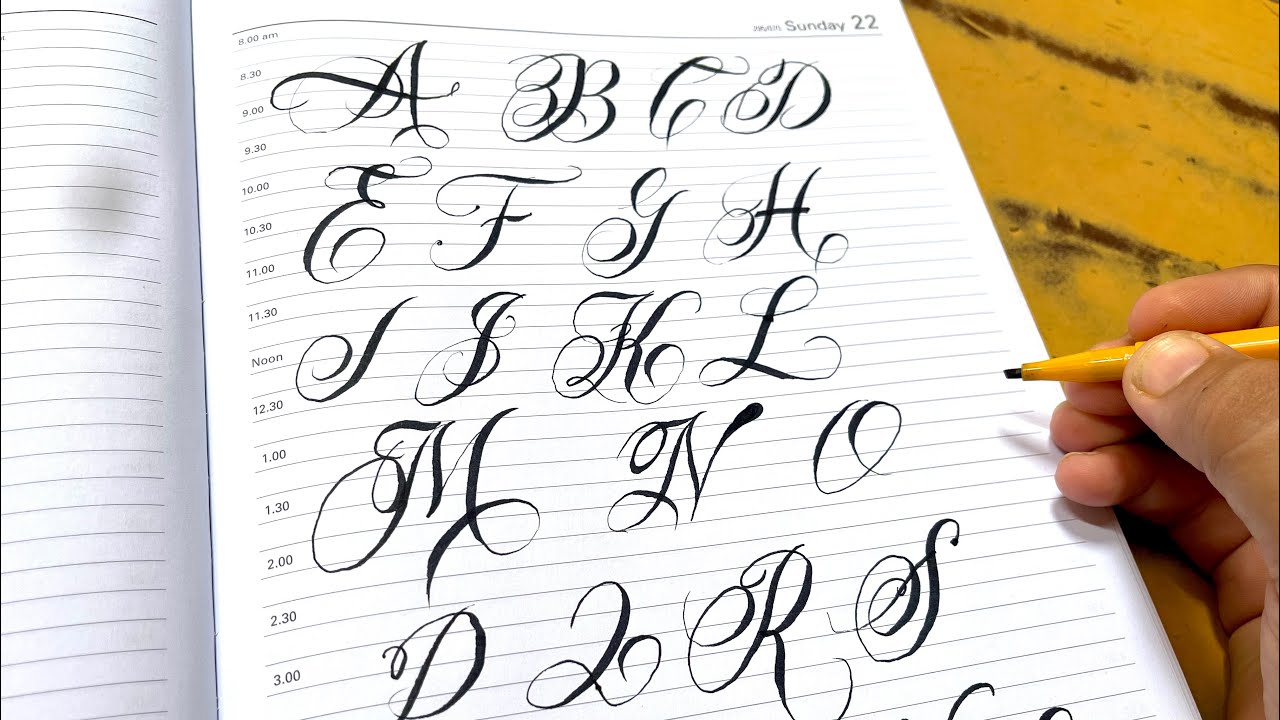 Sunday 22
8.00 am
8.30
A B C D
9.00
9.30
10.00
E F G H
10.30
11.00
11.30
I J K L
Noon
12.30
1.00
M N O
1.30
2.00
2.30
P Q R S
3.00